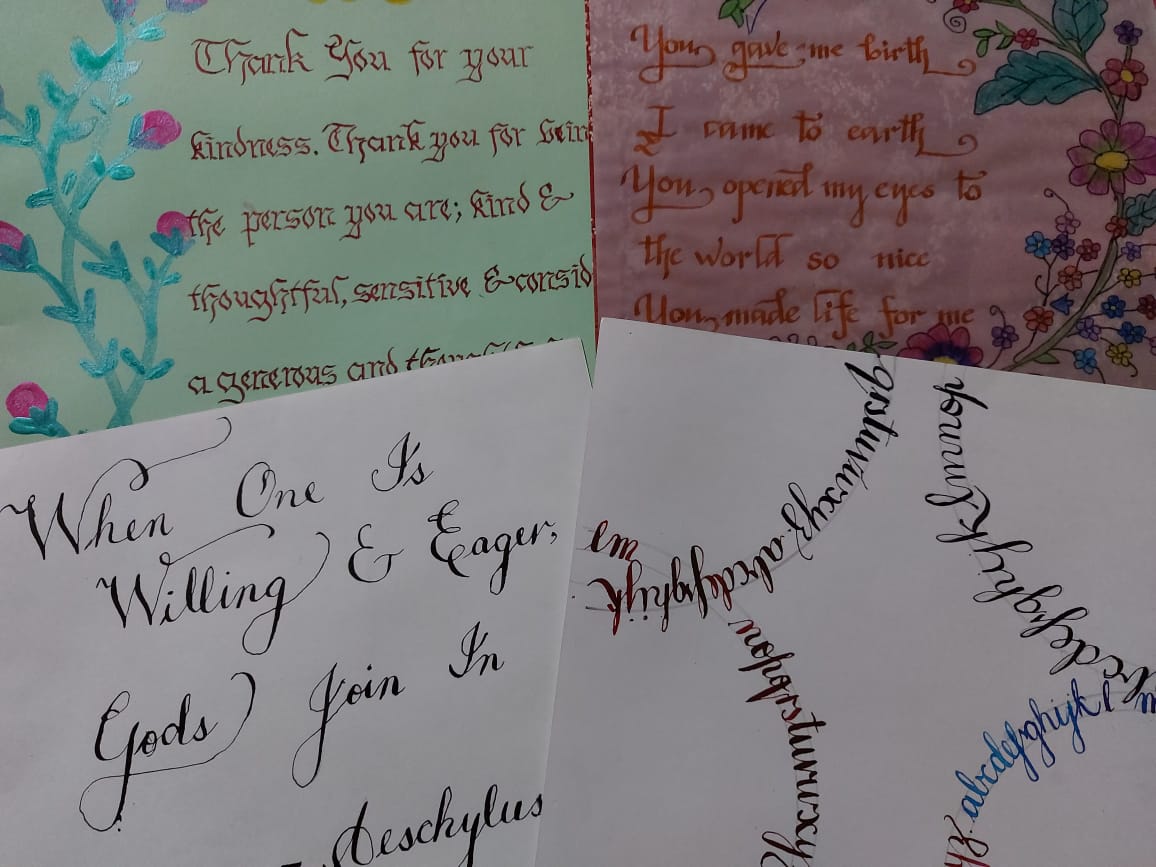 Thank You for your
kindness. Thank you for bein
the person you are; kind &
thoughtful, sensitive & consid
a generous and
You gave me birth
I came to earth
You opened my eyes to
the world so nice
You made life for me
When One Is
Willing & Eager,
Gods Join In
Aeschylus
qrstuvwxyz.abcdefghijk
lm
nopqrstuvwxy
abcdefghijkl
abcdefghijkl